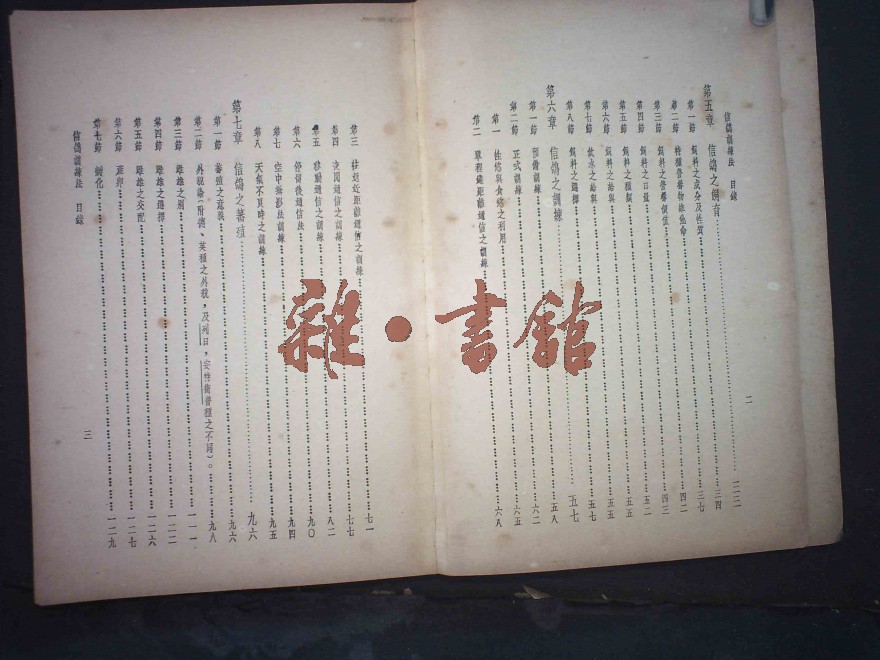 信鴿訓練法 目錄
二
第五章 信鴿之飼育……三四
第一節 飼料之成分及性質……三七
第二節 特種營養物維他命……四二
第三節 飼料之營養價值……四三
第四節 飼料之日量……五二
第五節 飼料之種類……五五
第六節 飼料之給與……五五
第七節 飲水之給與……五七
第八節 飼料之選擇……五七
第六章 信鴿之訓練……五八
第一節 預備訓練……六二
第二節 正式訓練……六五
第一 性慾與食慾之利用
第二 單程遠距離通信之訓練……六八
第三 往返近距離通信之訓練……七一
第四 夜間通信之訓練……七七
第五 移動通信之訓練……八二
第六 停留後通信法……九〇
第七 空中攝影法訓練……九四
第八 天氣不良時之訓練……九五
第七章 信鴿之蕃殖……九六
第一節 蕃殖之意義……九六
第二節 外貌論(附德、英種之外貌,及列日,安特衛普種之不同)。……九八
第三節 雌雄之別……一一一
第四節 雌雄之選擇……一二二
第五節 雌雄之交配……一二六
第六節 產卵……一二七
第七節 孵化……一二九
信鴿訓練法 目錄
三
雜·書館